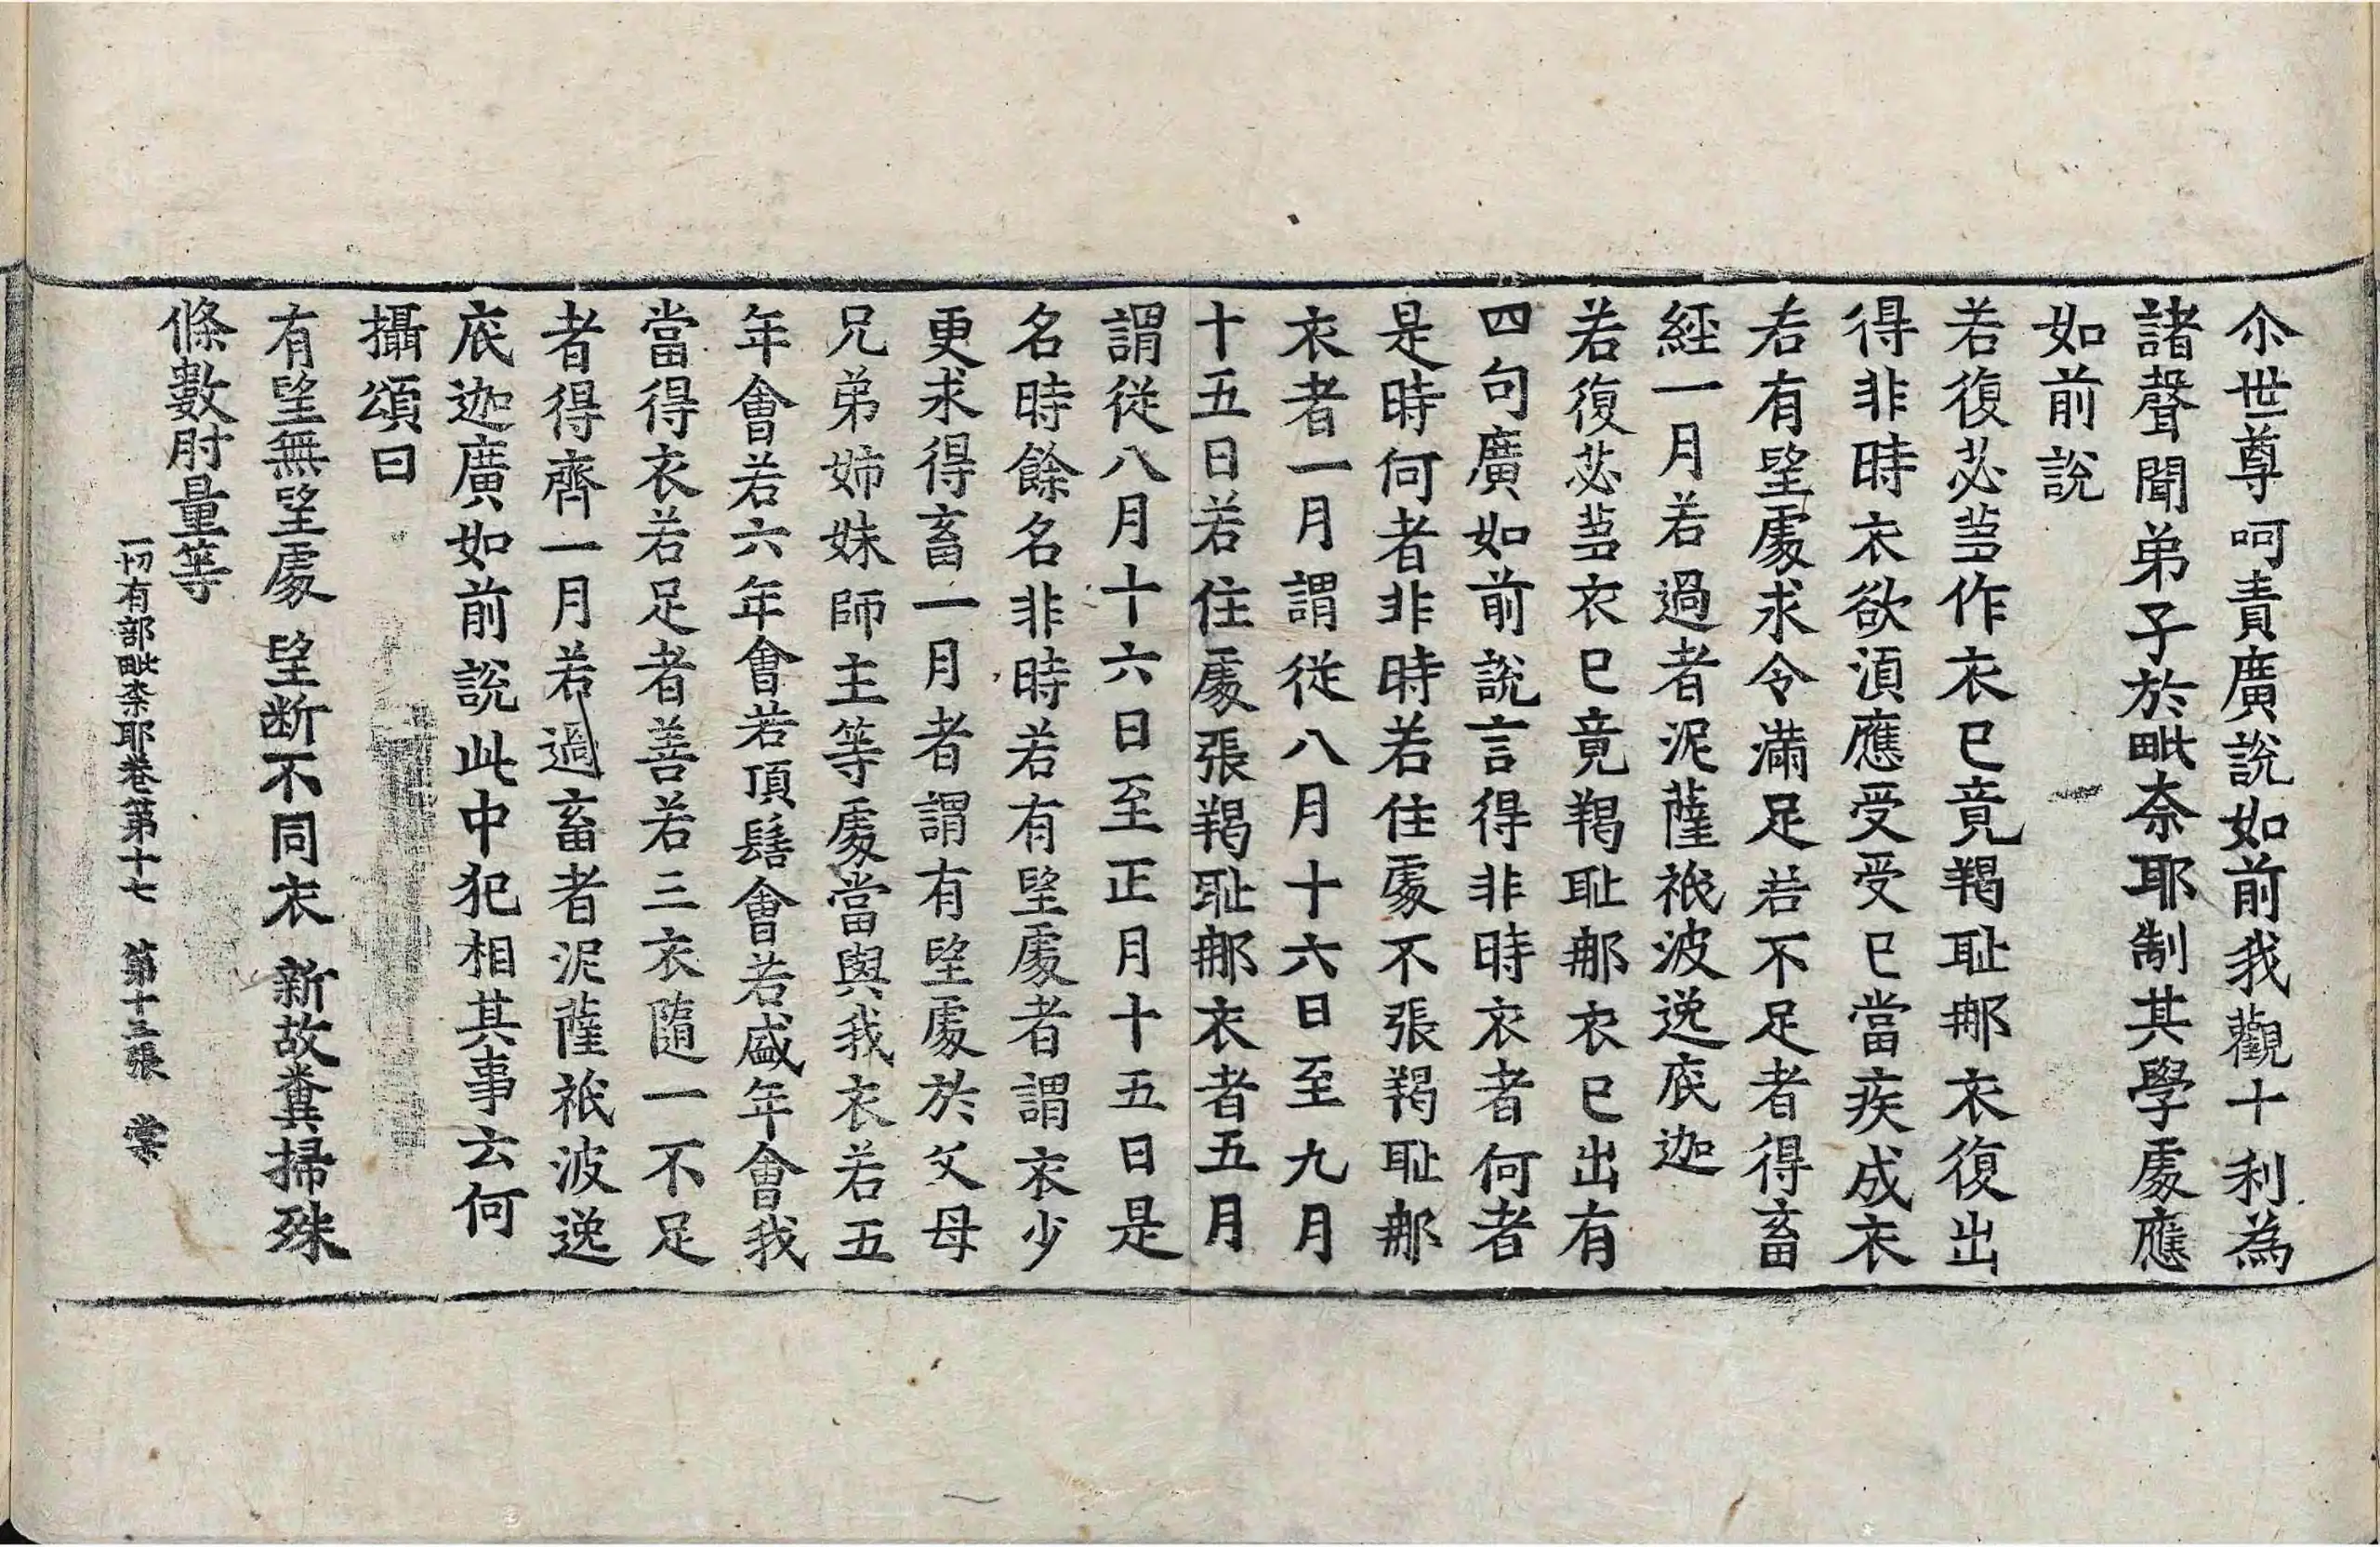 尒世尊呵責廣說如前我觀十利為
諸聲聞弟子於毗奈耶制其學處應
如前說
若復苾芻作衣已竟羯耻那衣復出
得非時衣欲湏應受受已當疾成衣
若有望處求令滿足若不足者得畜
經一月若過者泥薩祇波逸底迦
若復苾芻衣已竟羯耻那衣已出有
四句廣如前說言得非時衣者何者
是時何者非時若住處不張羯耻那
衣者一月謂從八月十六日至九月
十五日若住處張羯耻那衣者五月
謂從八月十六日至正月十五日是
名時餘名非時若有望處者謂衣少
更求得畜一月者謂有望處於父母
兄弟姉妹師主等處當與我衣若五
年會若六年會若頂髻會若盛年會我
當得衣若足者善若三衣隨一不足
者得齊一月若過畜者泥薩祇波逸
底迦廣如前說此中犯相其事云何
攝頌曰
有望無望處 望斷不同衣 新故糞掃殊
條數肘量等
一切有部毗柰耶卷第十七 第十三張 棠